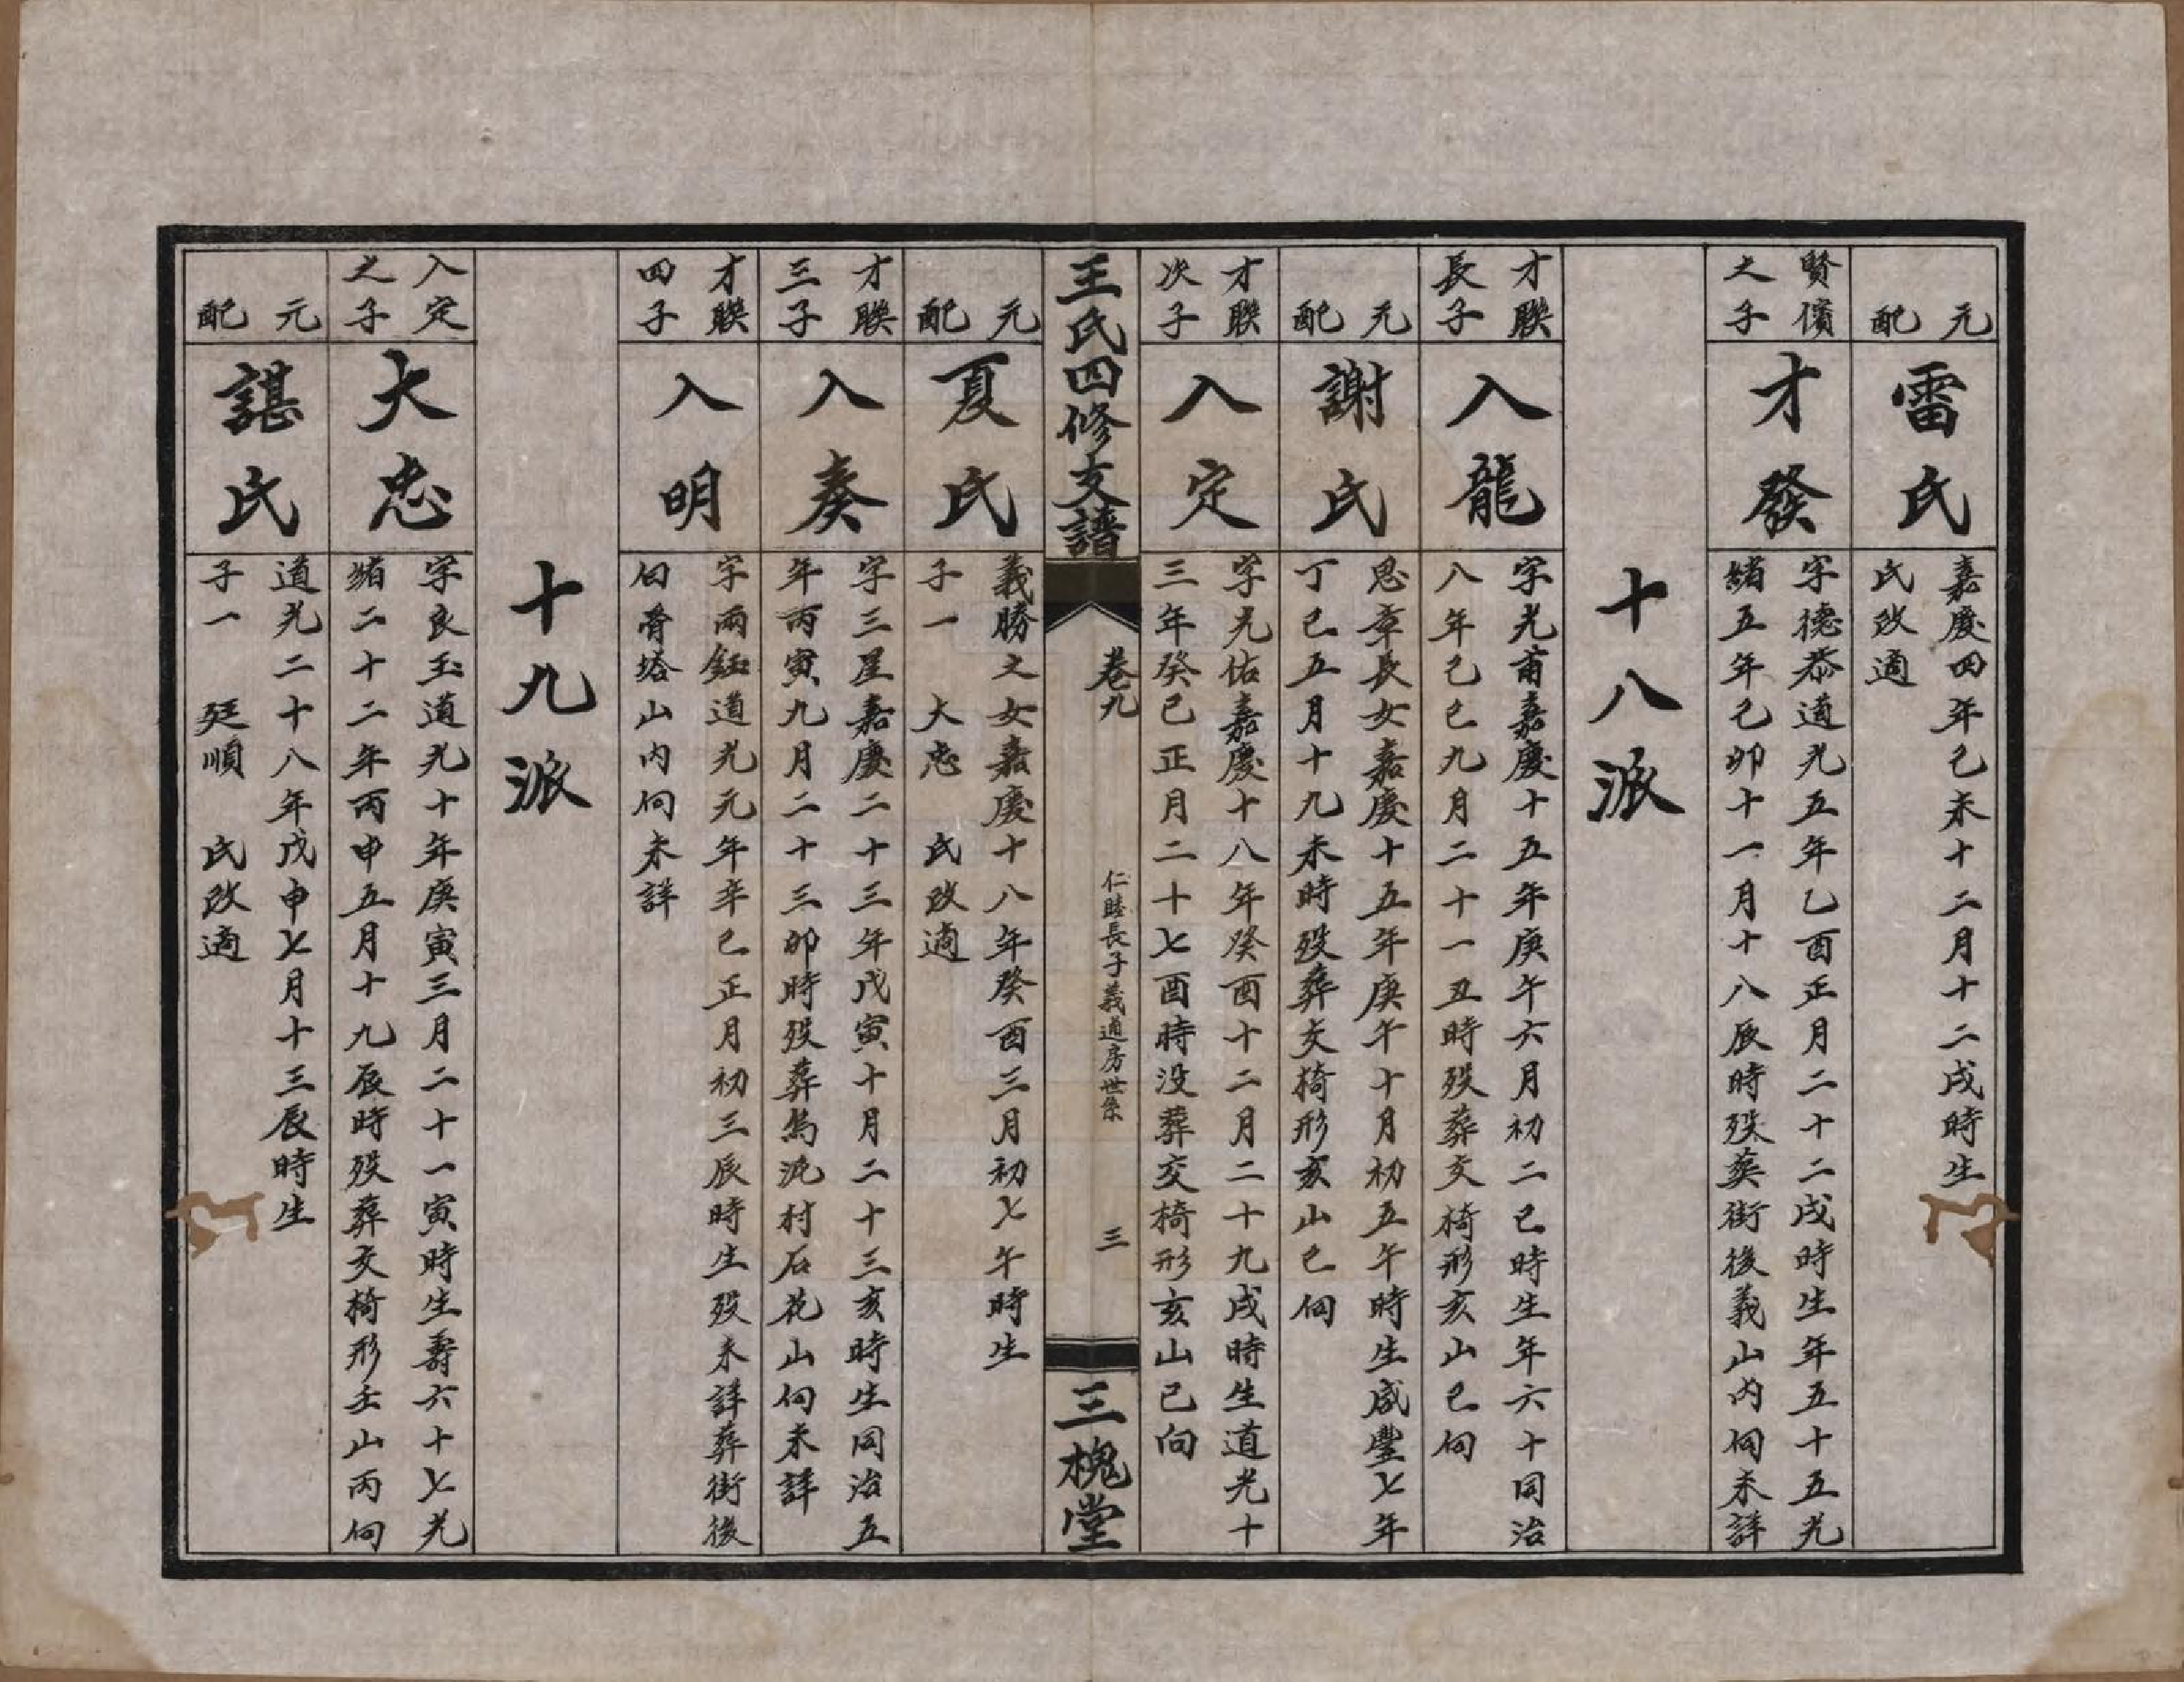 元
配
雷氏
嘉慶四年己未十二月十二戌時生
氏改適
賢儐
之子
才發
字德恭道光五年乙酉正月二十二戌時生年五十五光
緒五年己卯十一月十八辰時歿葬街後義山內向未詳
十八派
才聯
長子
入龍
字光甫嘉慶十五年庚午六月初二巳時生年六十同治
八年己巳九月二十一丑時歿葬交椅形亥山巳向
元
配
謝氏
思章長女嘉慶十五年庚午十月初五午時生咸豐七年
丁巳五月十九未時歿葬交椅形亥山巳向
才聯
次子
入定
字光佑嘉慶十八年癸酉十二月二十九戌時生道光十
三年癸巳正月二十七酉時没葬交椅形亥山巳向
王氏四修支譜
卷九
仁睦長子義道房世系
三
三槐堂
元
配
夏氏
義勝之女嘉慶十八年癸酉三月初七午時生
子一 大忠 氏改適
才聯
三子
入奏
字三星嘉慶二十三年戊寅十月二十三亥時生同治五
年丙寅九月二十三卯時歿葬烏沉村石花山向未詳
才聯
四子
入明
字兩鈺道光元年辛巳正月初三辰時生歿未詳葬街後
白骨塔山内向未詳
十九派
入定
之子
大忠
字良玉道光十年庚寅三月二十一寅時生壽六十七光
緒二十二年丙申五月十九辰時歿葬交椅形壬山丙向
元
配
諶氏
道光二十八年戊申七月十三辰時生
子一 廷順 氏改適